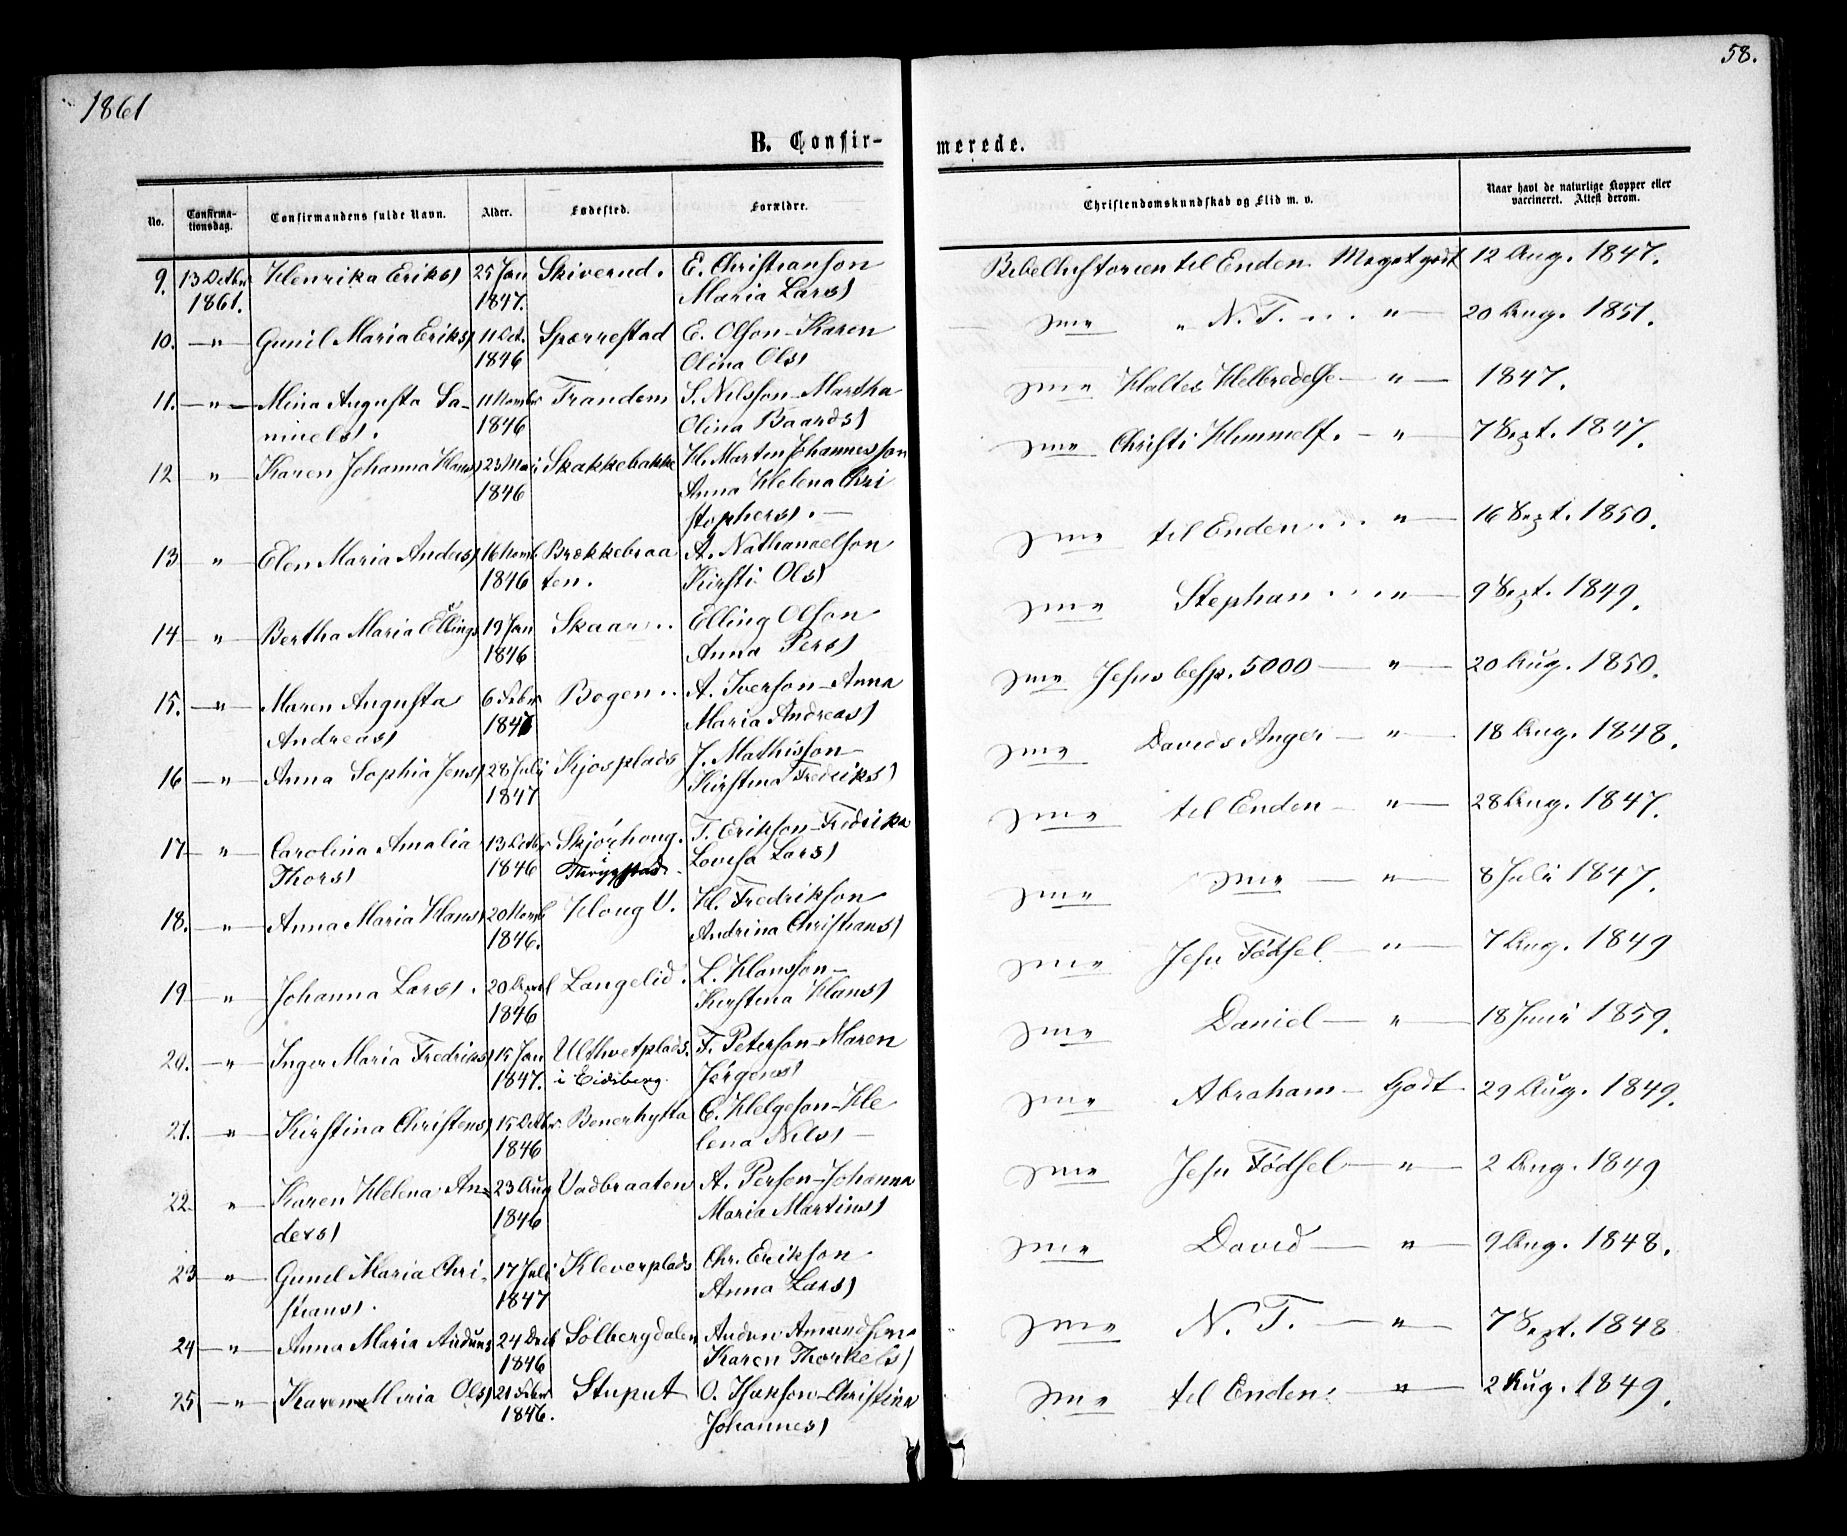 1861
58.
B. Confir-
merede.
No.
Confirma-
tionsdag.
Confirmandens fulde Navn.
Alder.
Fødested.
Forældre.
Christendomskundskab og Flid m. v.
Naar havt de naturlige Kopper eller
vaccineret. Attest derom.
9. 13 Octbr Henrika Eriks) 25 Jan Skiverud. E. Christianson Bibelhistorien til Enden. Meget godt 12 Aug. 1847.
1861. 1847. Maria Lars)
10. — " — Gunil Maria Eriks) 11 Oct. Spærrestad E. Olson - Karen " N. T. . . . . " — 20 Aug. 1851.
1846 Olina Ols)
11. — " — Mina Augusta Sa- 11 Novbr Trandem S. Nilsson - Martha Haltes Helbredelse — " — 1847.
muels). 1846 Olina Baards)
12 " — Karen Johanna Hans) 23 Mai Skakkebakke H. Marten Johannesson Christi Himmelf. — " — 7 Sept. 1847.
1846 Anna Helena Chri
stophers). —
13 " — Elen Maria Anders) 16 Novb Brækkebraa A. Nathanaelson til Enden . . . " — 16 Sept. 1850.
1846 ten. Kirsti Ols)
14 " — Bertha Maria Ellings 19 Jan Skaar . . Elling Olson Stephan . . . " — 9 Sept. 1849.
1846 Anna Pers)
15. — " — Maren Augusta 6 Febr Bogen . . A. Iverson - Anna Jesus besp. 5000 — " — 20 Aug. 1850.
Andreas) Maria Andreas)
16 — " — Anna Sophia Jens) 28 Juli Kjosplads J. Mathisson — Davids Anger — " — 18 Aug. 1848.
1847 Kirstina Fredriks)
17 — " — Carolina Amalia 13 Octbr Skjørhoug. T. Erikson - Fredrika til Enden — " — 28 Aug. 1847.
Thors) 1846 i Thrygstad. Lovisa Lars)
18. — " — Anna Maria Hans) 20 Novb Houg V. H. Fredrikson — " — 8 Juli 1847.
1846. Andrina Christians)
19 — " — Johanna Lars). 20 April Langelid. L. Hansson — Jesu Fødsel — " — 7 Aug. 1849
1846 Kirstina Hans)
20. — " — Inger Maria Fredriks) 15 Jan Ulthvetplads. F. Peterson - Maren Daniel — " — 18 Juni 1859.
1847. i Eidsberg. Jørgens)
21. — " — Kirstina Christens) 15 Octbr Benerhytta C. Helgeson - He Abraham — Godt 29 Aug. 1849.
1846 lena Nils) —
22. " — Karen Helena An- 23 Aug Vadbraaten A. Person - Johanna Jesu Fødsel — " — 2 Aug. 1849
ders) 1846 Maria Martins)
23 — " — Gunil Maria Chri- 17 Juli Kleverplads Chr. Erikson David — " — 9 Aug. 1848.
stians). 1847 Anna Lars)
24 — " — Anna Maria Auduns 24 Decb Sølbergdalen Audun Amundson N. T. — " — 7 Sept. 1848
1846 Karen Thorkels)
25 — " — Karen Maria Ols) Stuput O. — Christina til Enden. " — 2 Aug. 1849.
1846. Johannes)